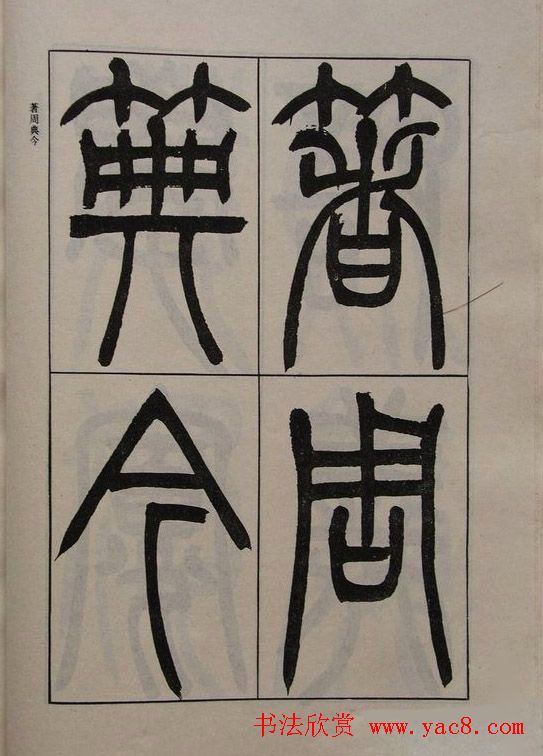 著周
典今
著周典今
书法欣赏 www.yac8.com